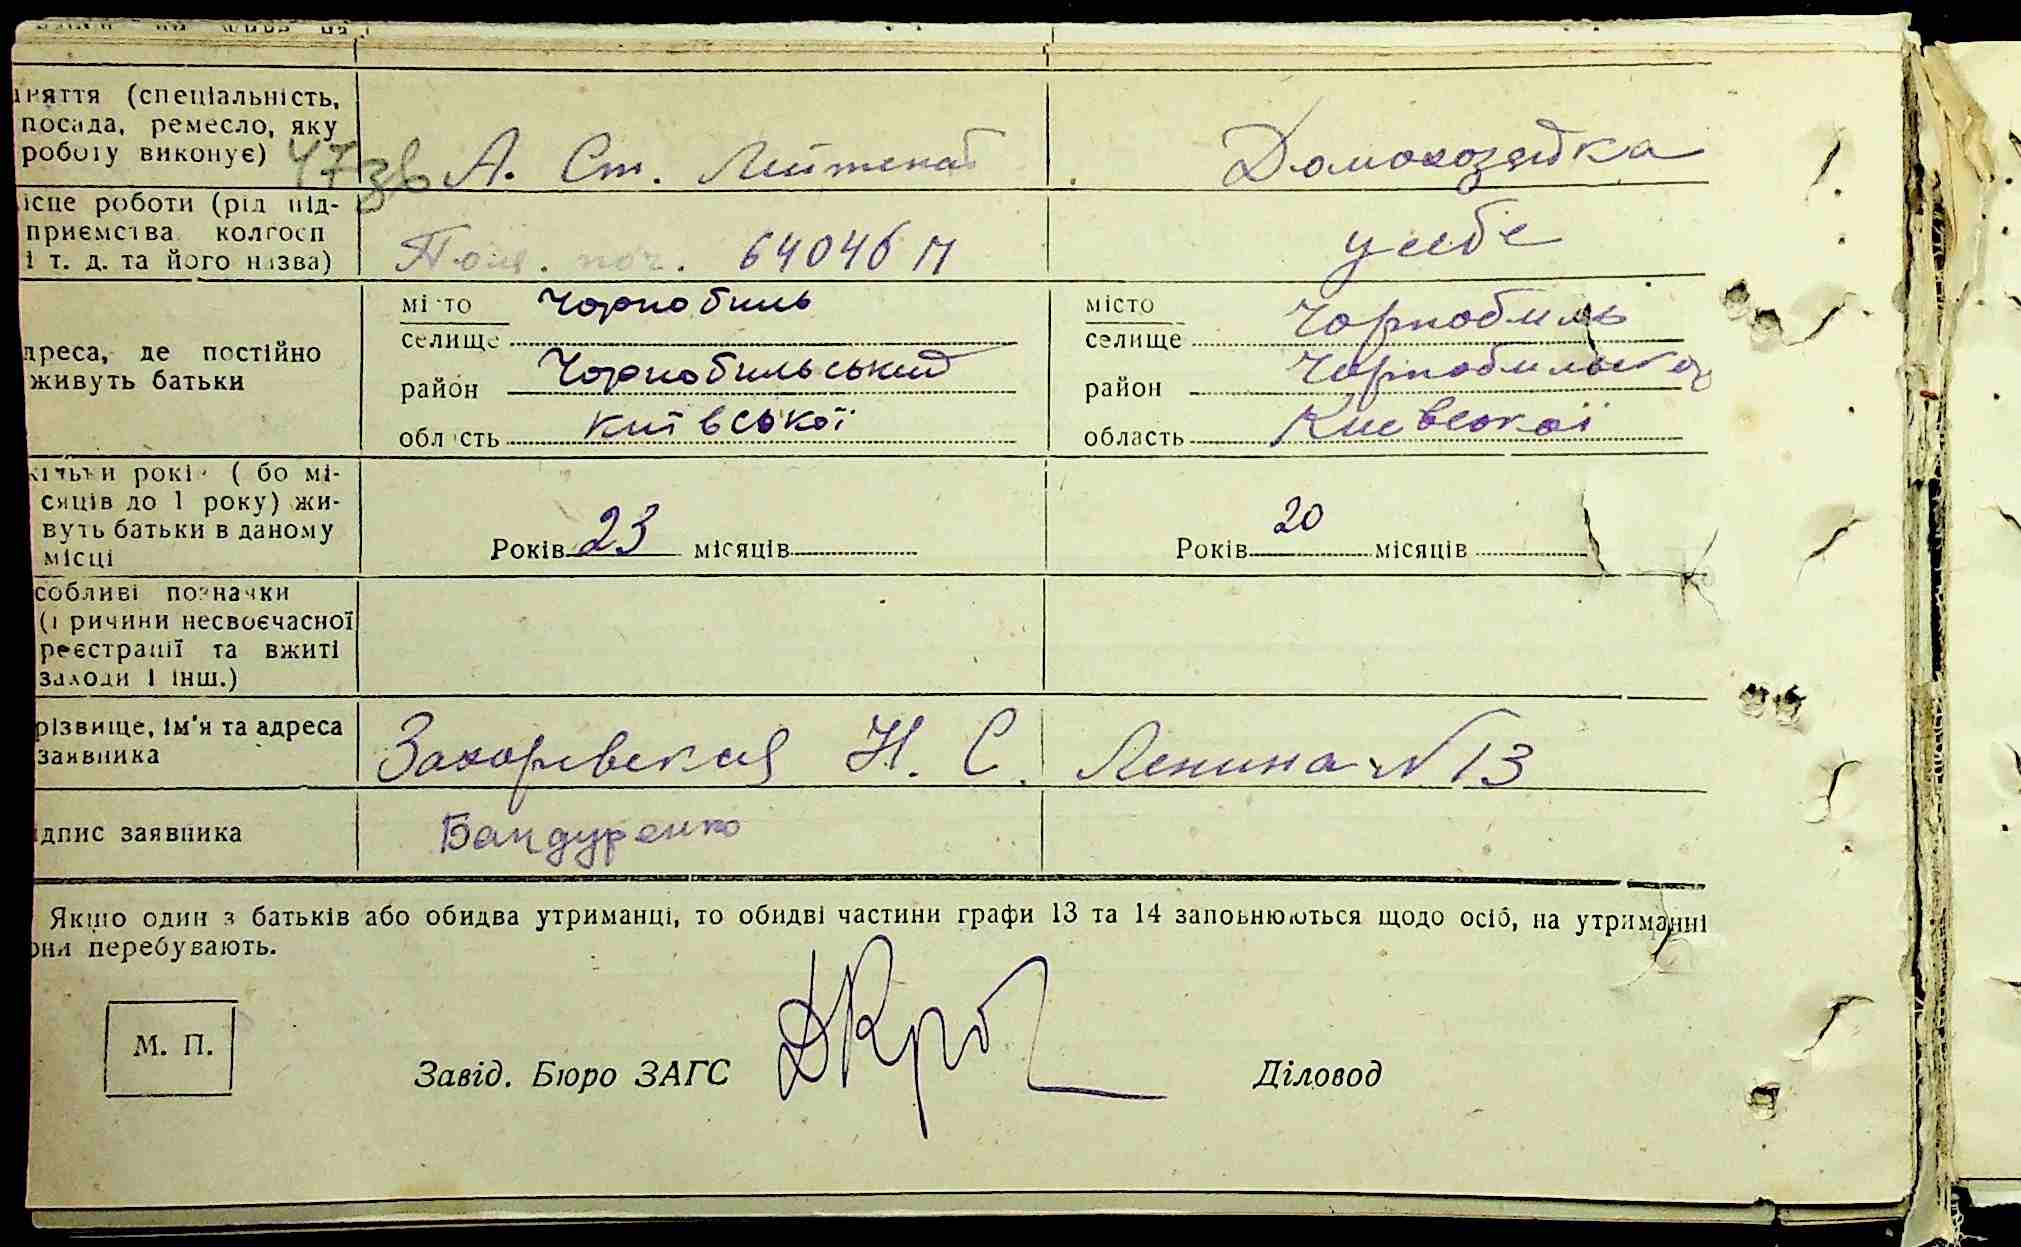 няття (спеціальність,
посада, ремесло, яку
роботу виконує)
47зв А. Ст. Лейтенат
Домохозяйка
ісце роботи (рід під-
приємства колгосп
і т. д. та його назва)
Пол. поч. 64046 П
у себе
дреса, де постійно
живуть батьки
місто Чорнобиль
селище
район Чорнобильський
область Київської
місто Чорнобиль
селище
район Чорнобильско
область Киевськой
кільки років ( бо мі-
сяців до 1 року) жи-
вуть батьки в даному
місці
Років 23 місяців
Років 20 місяців
собливі позначки
(причини несвоєчасної
реєстрації та вжиті
заходи і інш.)
різвище, ім'я та адреса
заявника
Захоревская Н. С. Ленина №13
ідпис заявника
Бандуренко
Якщо один з батьків або обидва утриманці, то обидві частини графи 13 та 14 заповнюються щодо осіб, на утриманні
они перебувають.
М. П.
Завід. Бюро ЗАГС
Діловод